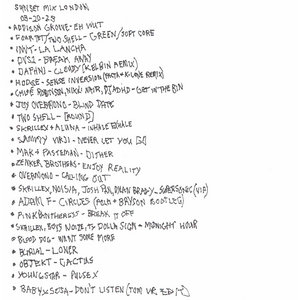 SUNSET MIX LONDON
08-20-23
• ADDISON GROOVE - EH WUT
• FOUR TET/TWO SHELL - GREEN/SOFT CORE
• INVT - LA LANCHA
• DVS1 - BREAK AWAY
• DAPHNI - CLOUDY (KELBIN REMIX)
• HODGE - SENSE INVERSION (PACH + K-LONE REMIX)
• CHLOÉ ROBINSON, NIKKI NAIR, DJ ADHD - GET IN THE RUN
• JOY OVERMONO - BLIND DATE
• TWO SHELL - [ROUND]
• SKRILLEX + ALUNA - INHALE EXHALE
• SAMMY VIRJI - NEVER LET YOU GO
• MAK + PASTEMAN - DITHER
• ZENKER BROTHERS - ENJOY REALITY
• OVERMONO - CALLING OUT
• SKRILLEX, NOISIA, JOSH PAN, DYLAN BRADY - SUPERSONIC (VIP)
• ADAM F - CIRCLES (BRYSON BOOTLEG)
• PINKPANTHERESS - BREAK IT OFF
• SKRILLEX, BOYS NOIZE, TY DOLLA $IGN - MIDNIGHT HOUR
• BLOOD DOG - WANT SOME MORE
• BURIAL - LONER
• OBJEKT - CACTUS
• YOUNGSTAR - PULSE X
• BABYXSOSA - DON'T LISTEN (EDIT)